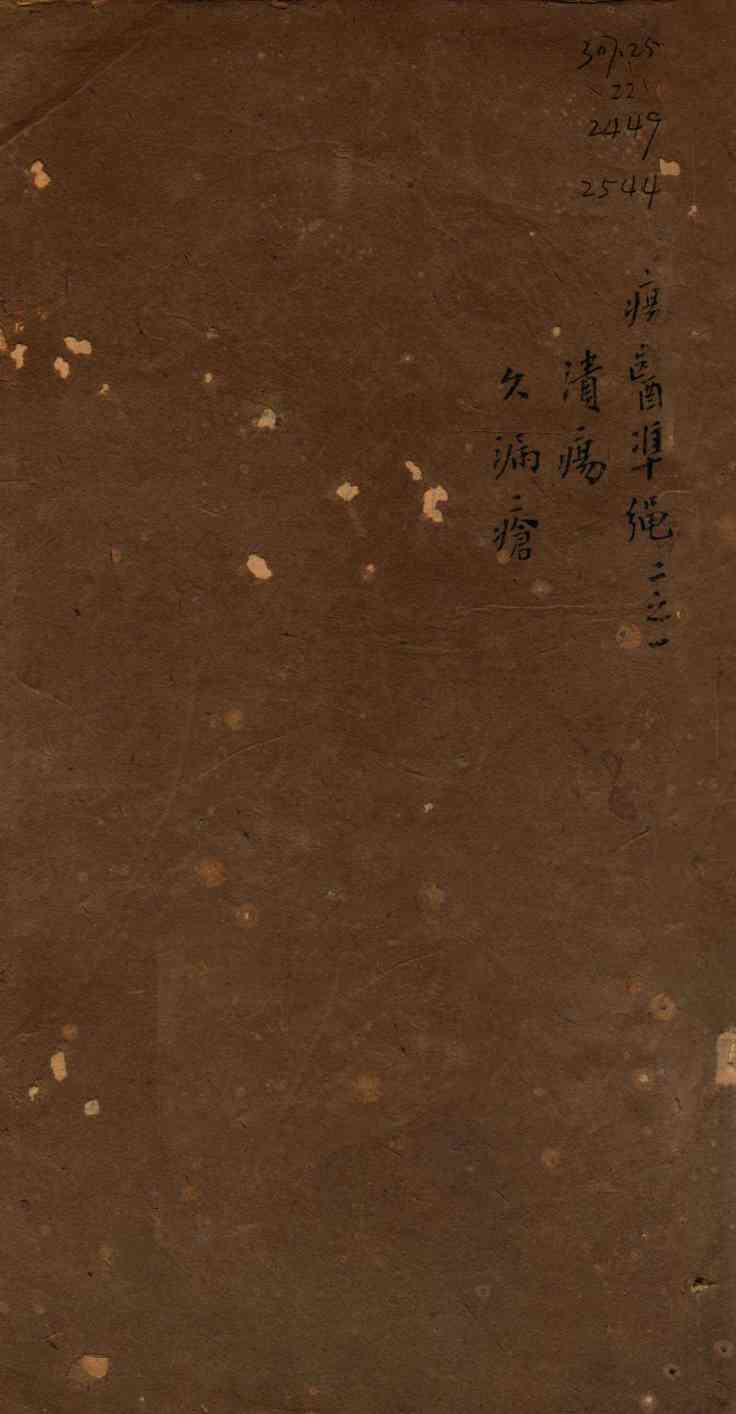 307.25
22
2449
2544
瘍醫準繩二之一
潰瘍
久漏瘡